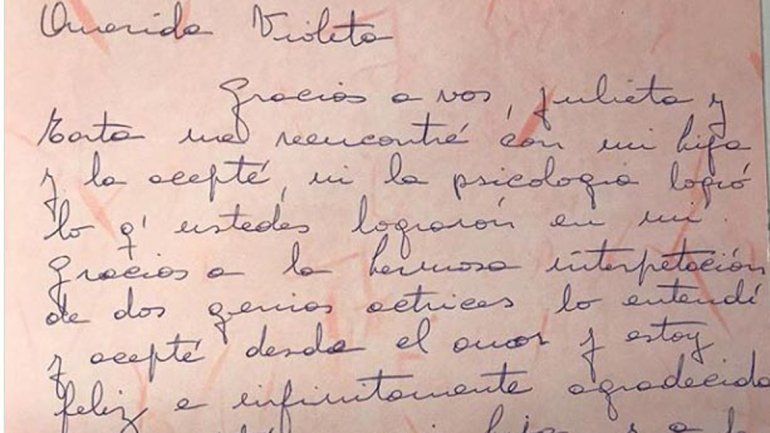 Querida Violeta
Gracias a vos, Julieta y
Marta me reencontré con mi hija
y la acepté, ni la psicologia logró
lo q' ustedes lograrón en mi.
Gracias a la hermosa interpetación
de dos genias actrices lo entendí
y acepté desde el amor y estoy
feliz e infinitamente agradecida
hija y a la